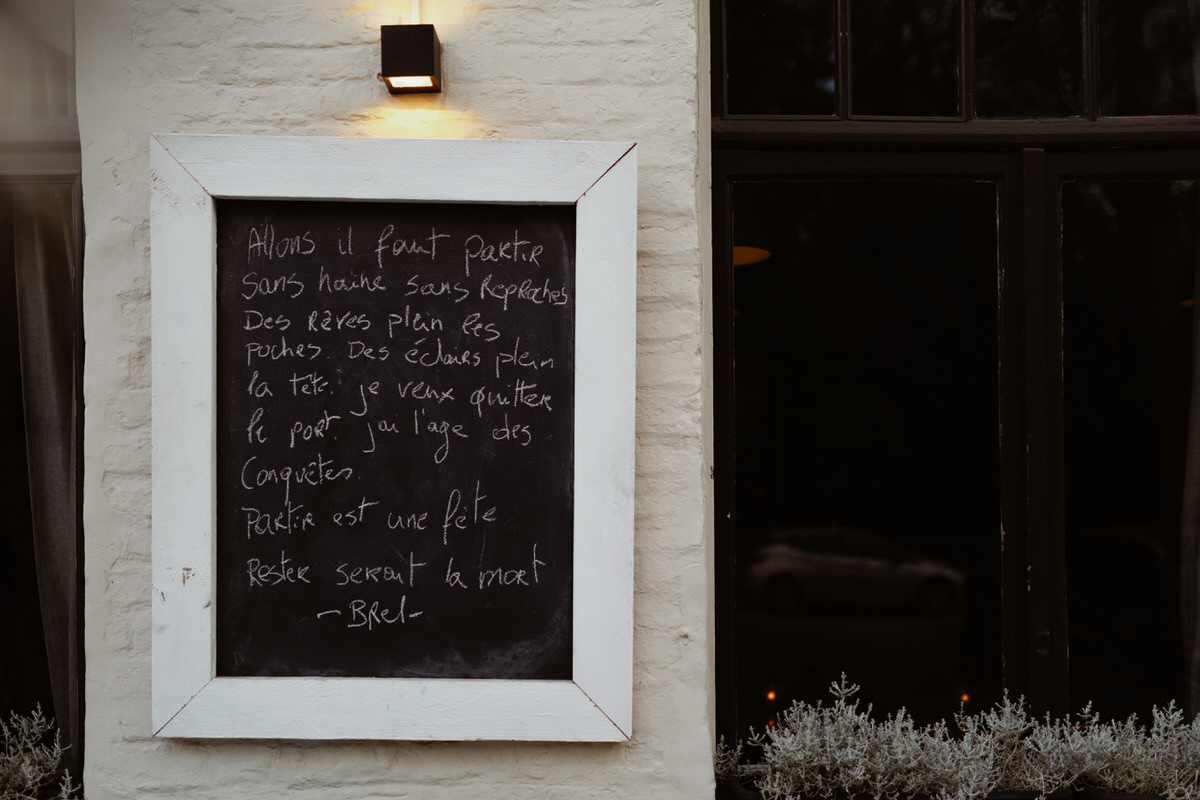 Allons il faut partir
Sans haine sans Reproches
Des Rêves plein les
poches. Des éclairs plein
la tête. je veux quitter
le port. j'ai l'age des
Conquêtes.
partir est une fête
Rester serait la mort
- BRel -